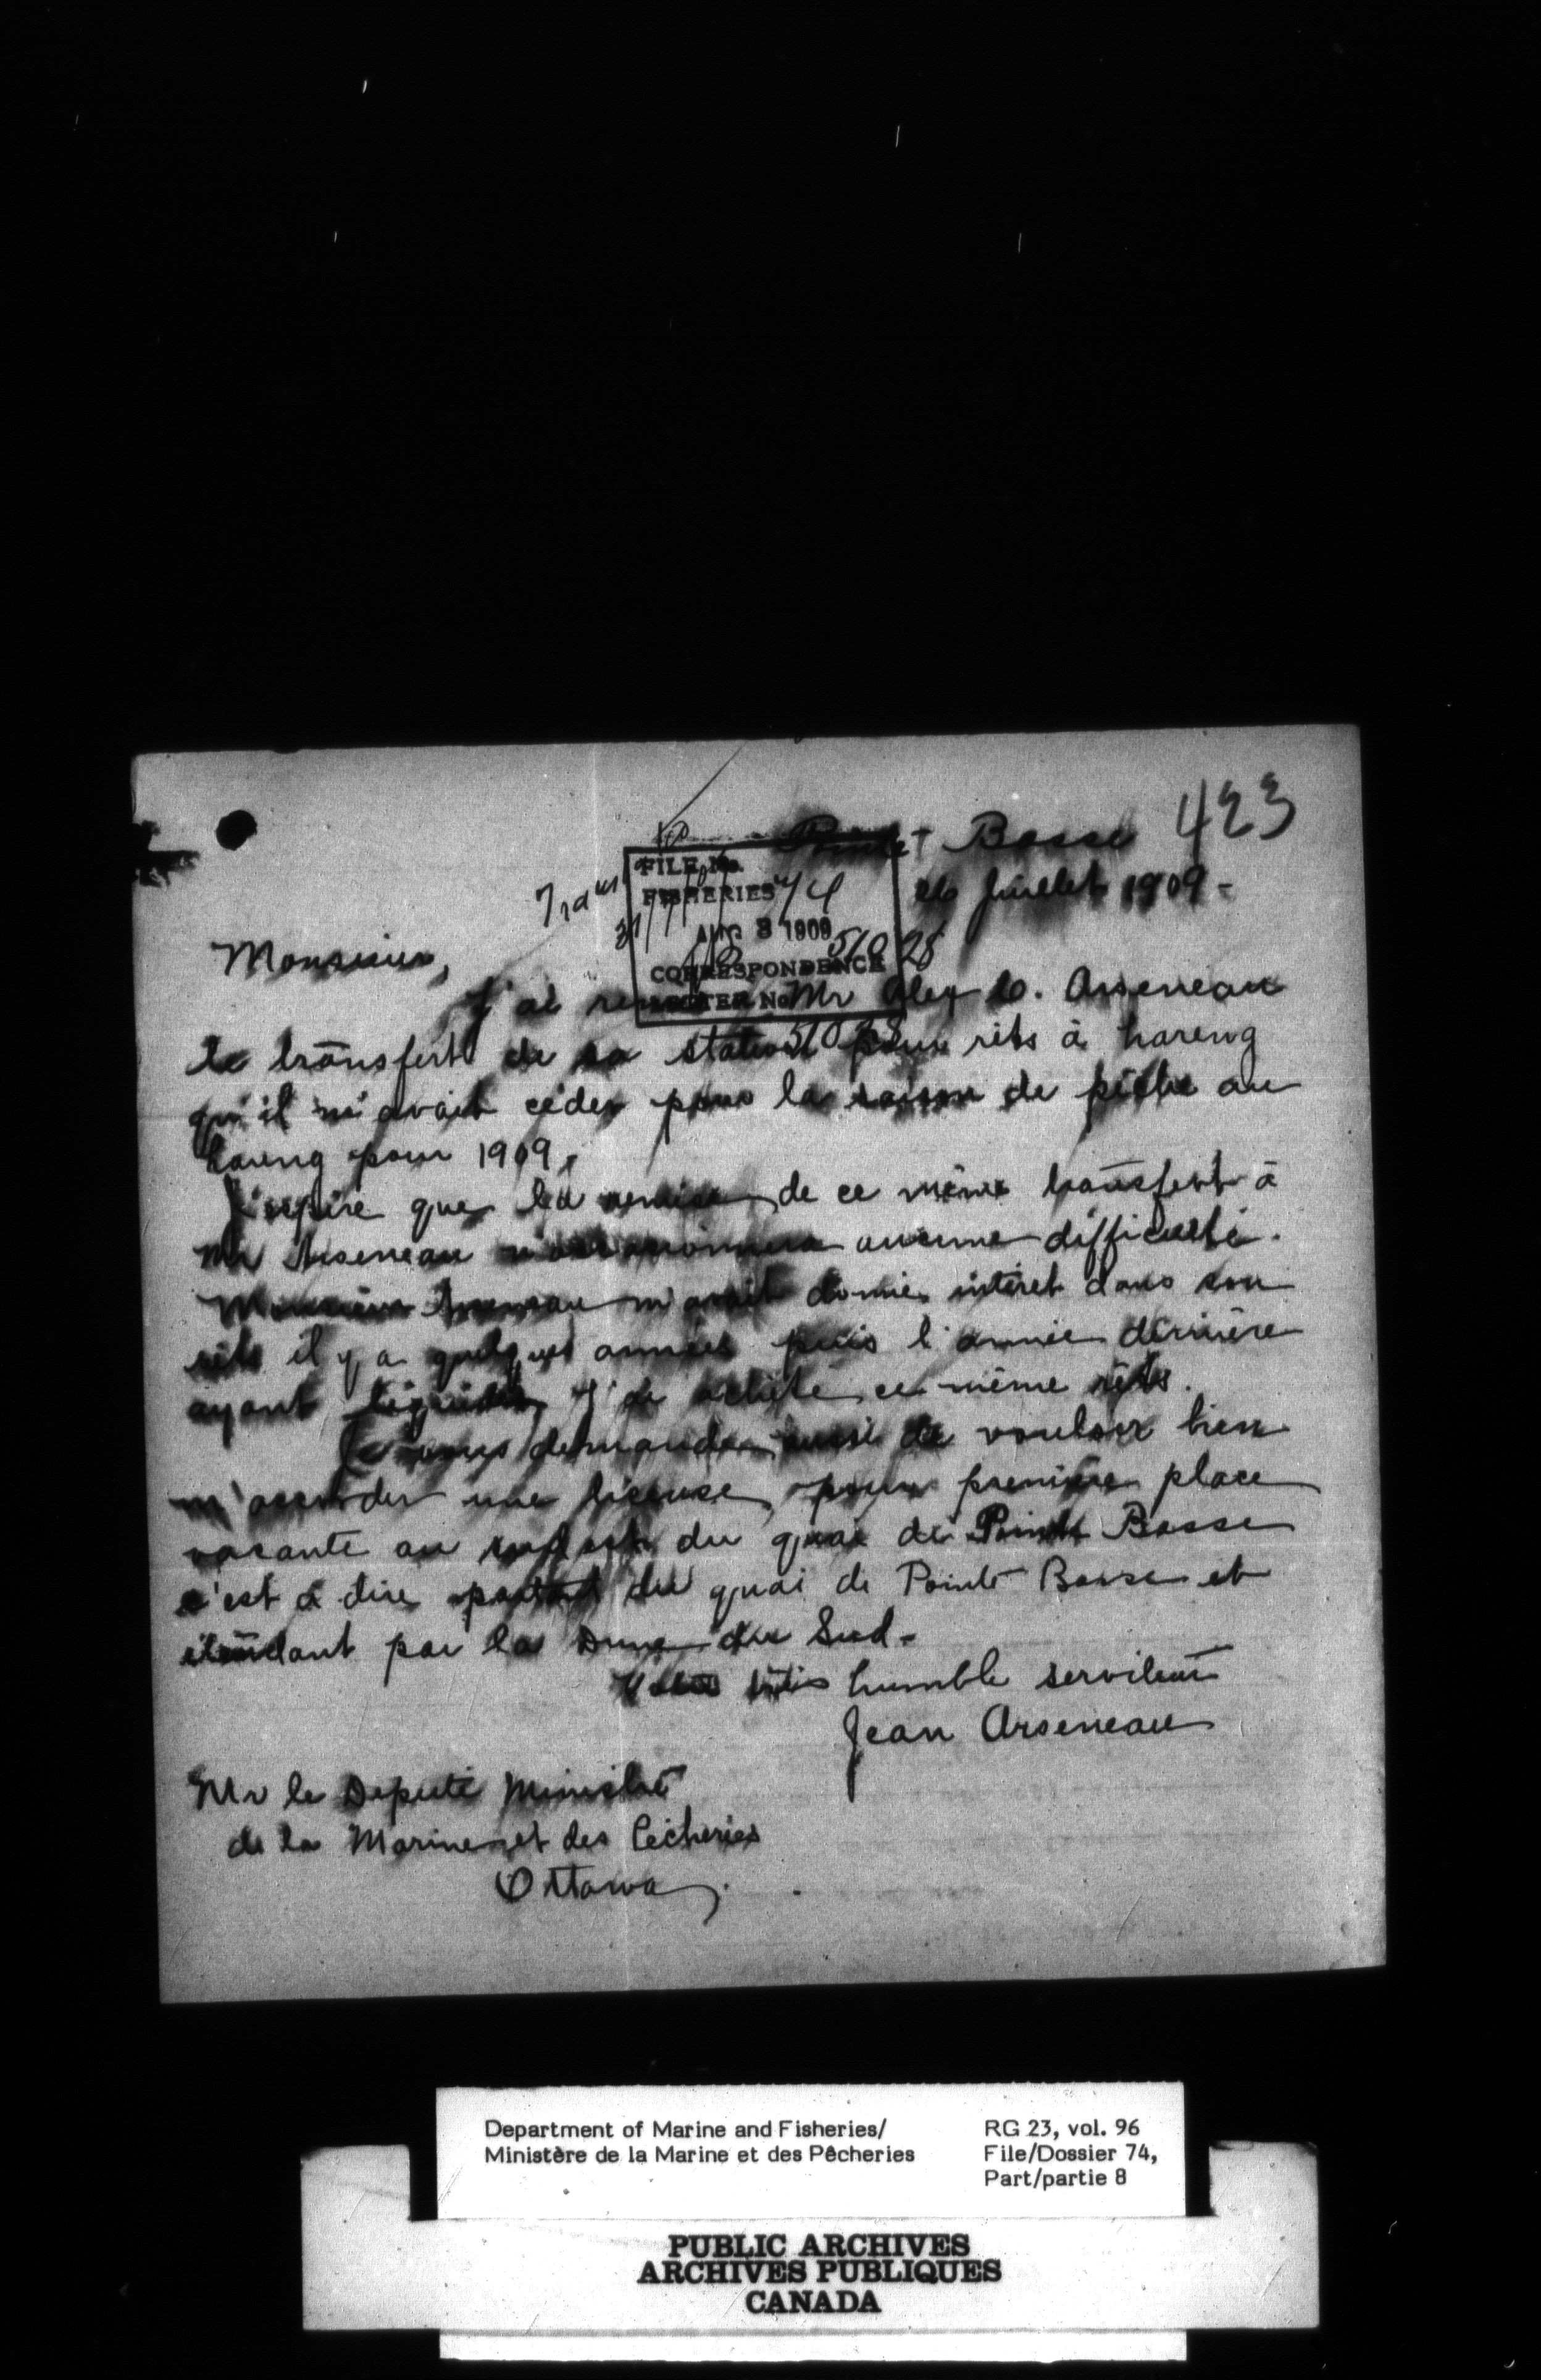 423
Pointe Basse
26 Juillet 1909 -
FILE No.
FISHERIES 74
AUG 3 1909
51028
CORRESPONDENCE
LETTER No.
51028
Trans
Monsieur,
J'ai remis Mr Alex C. Arseneau
le transfert de sa station pour rêts à hareng
qu'il m'avait céder pour la saison de pêche au
hareng pour 1909,
J'espère que la remise de ce même transfert à
Mr Arseneau n'occasionnera aucune difficulté.
Monsieur Arseneau m'avait donné intéret dans son
rêts il y a quelques années puis l'année dernière
ayant J'ai acheté ce même rêts.
Je vous demande aussi de vouloir bien
m'accorder une license pour première place
vacante au du quai de Pointe Basse
c'est à dire partant du quai de Pointe Basse et
étendant par la Dune du Sud.
Votre très humble serviteur
Jean Arseneau
Mr le Deputé Ministre
de la Marine et des Pêcheries
Ottawa.
Department of Marine and Fisheries/
Ministère de la Marine et des Pêcheries
RG 23, vol. 96
File/Dossier 74,
Part/partie 8
PUBLIC ARCHIVES
ARCHIVES PUBLIQUES
CANADA